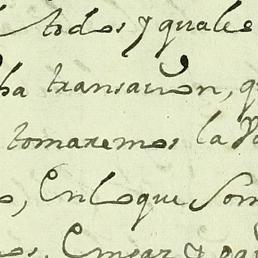 todos y quales
ha transacion, q
tomaremos la
o, En lo que Som